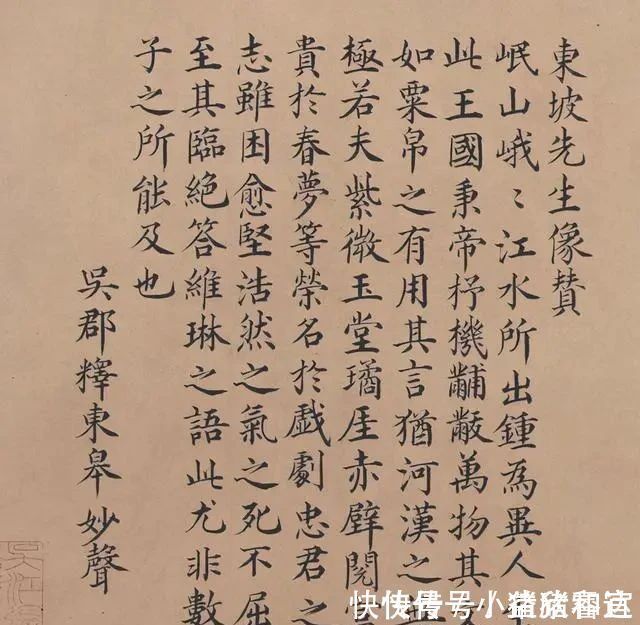 東坡先生像贊
岷山峨〻江水所出鍾為異人
此王國秉帝杼機黼黻萬物其
如粟帛之有用其言猶河漢之
極若夫紫微玉堂瓊厓赤壁閱
貴於春夢等榮名於戲劇忠君之
志雖困愈堅浩然之氣之死不屈
至其臨絕答維琳之語此尤非數
子之所能及也
吳郡釋東皋妙聲
快传号/小猪猪和迈